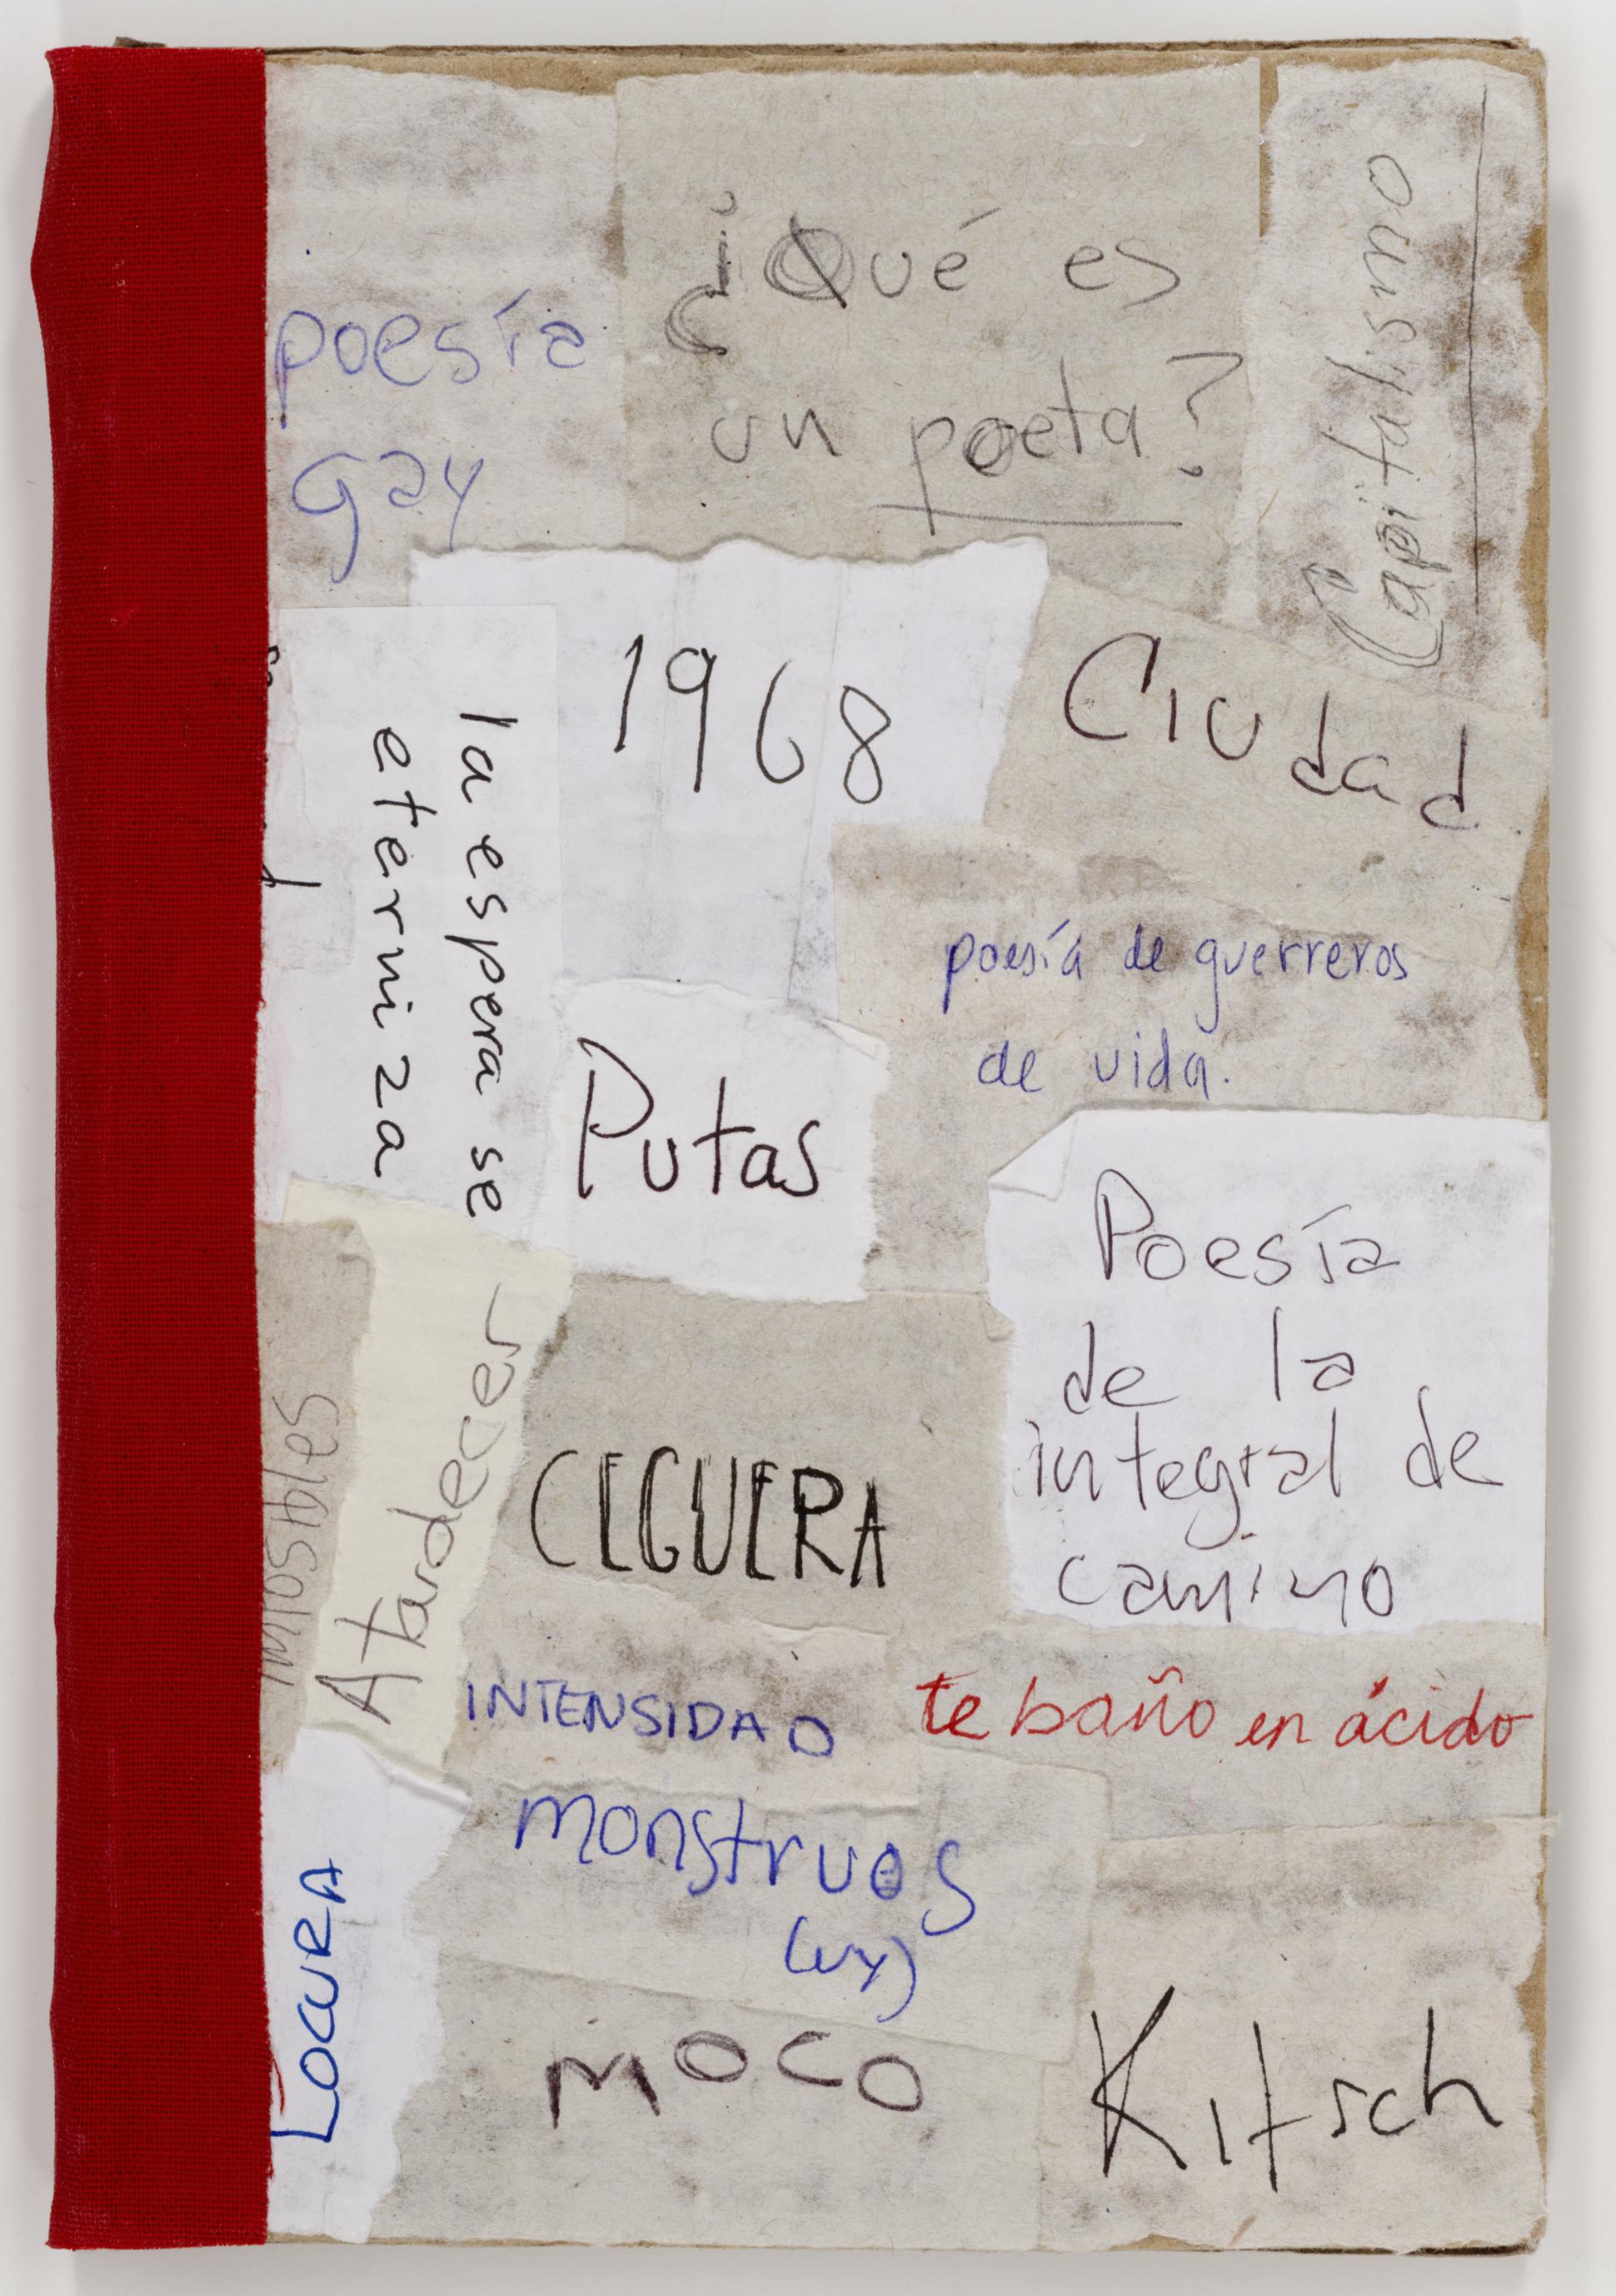 poesía
gay
¿Qué es
un poeta?
Capitalismo
la espera se
eterniza
1968
Ciudad
poesía de guerreros
de vida.
Putas
Poesía
de la
integral de
camino
Atardecer
CEGUERA
INTENSIDAD
te baño en ácido
monstruos
(uy)
LOCURA
MOCO
Kitsch